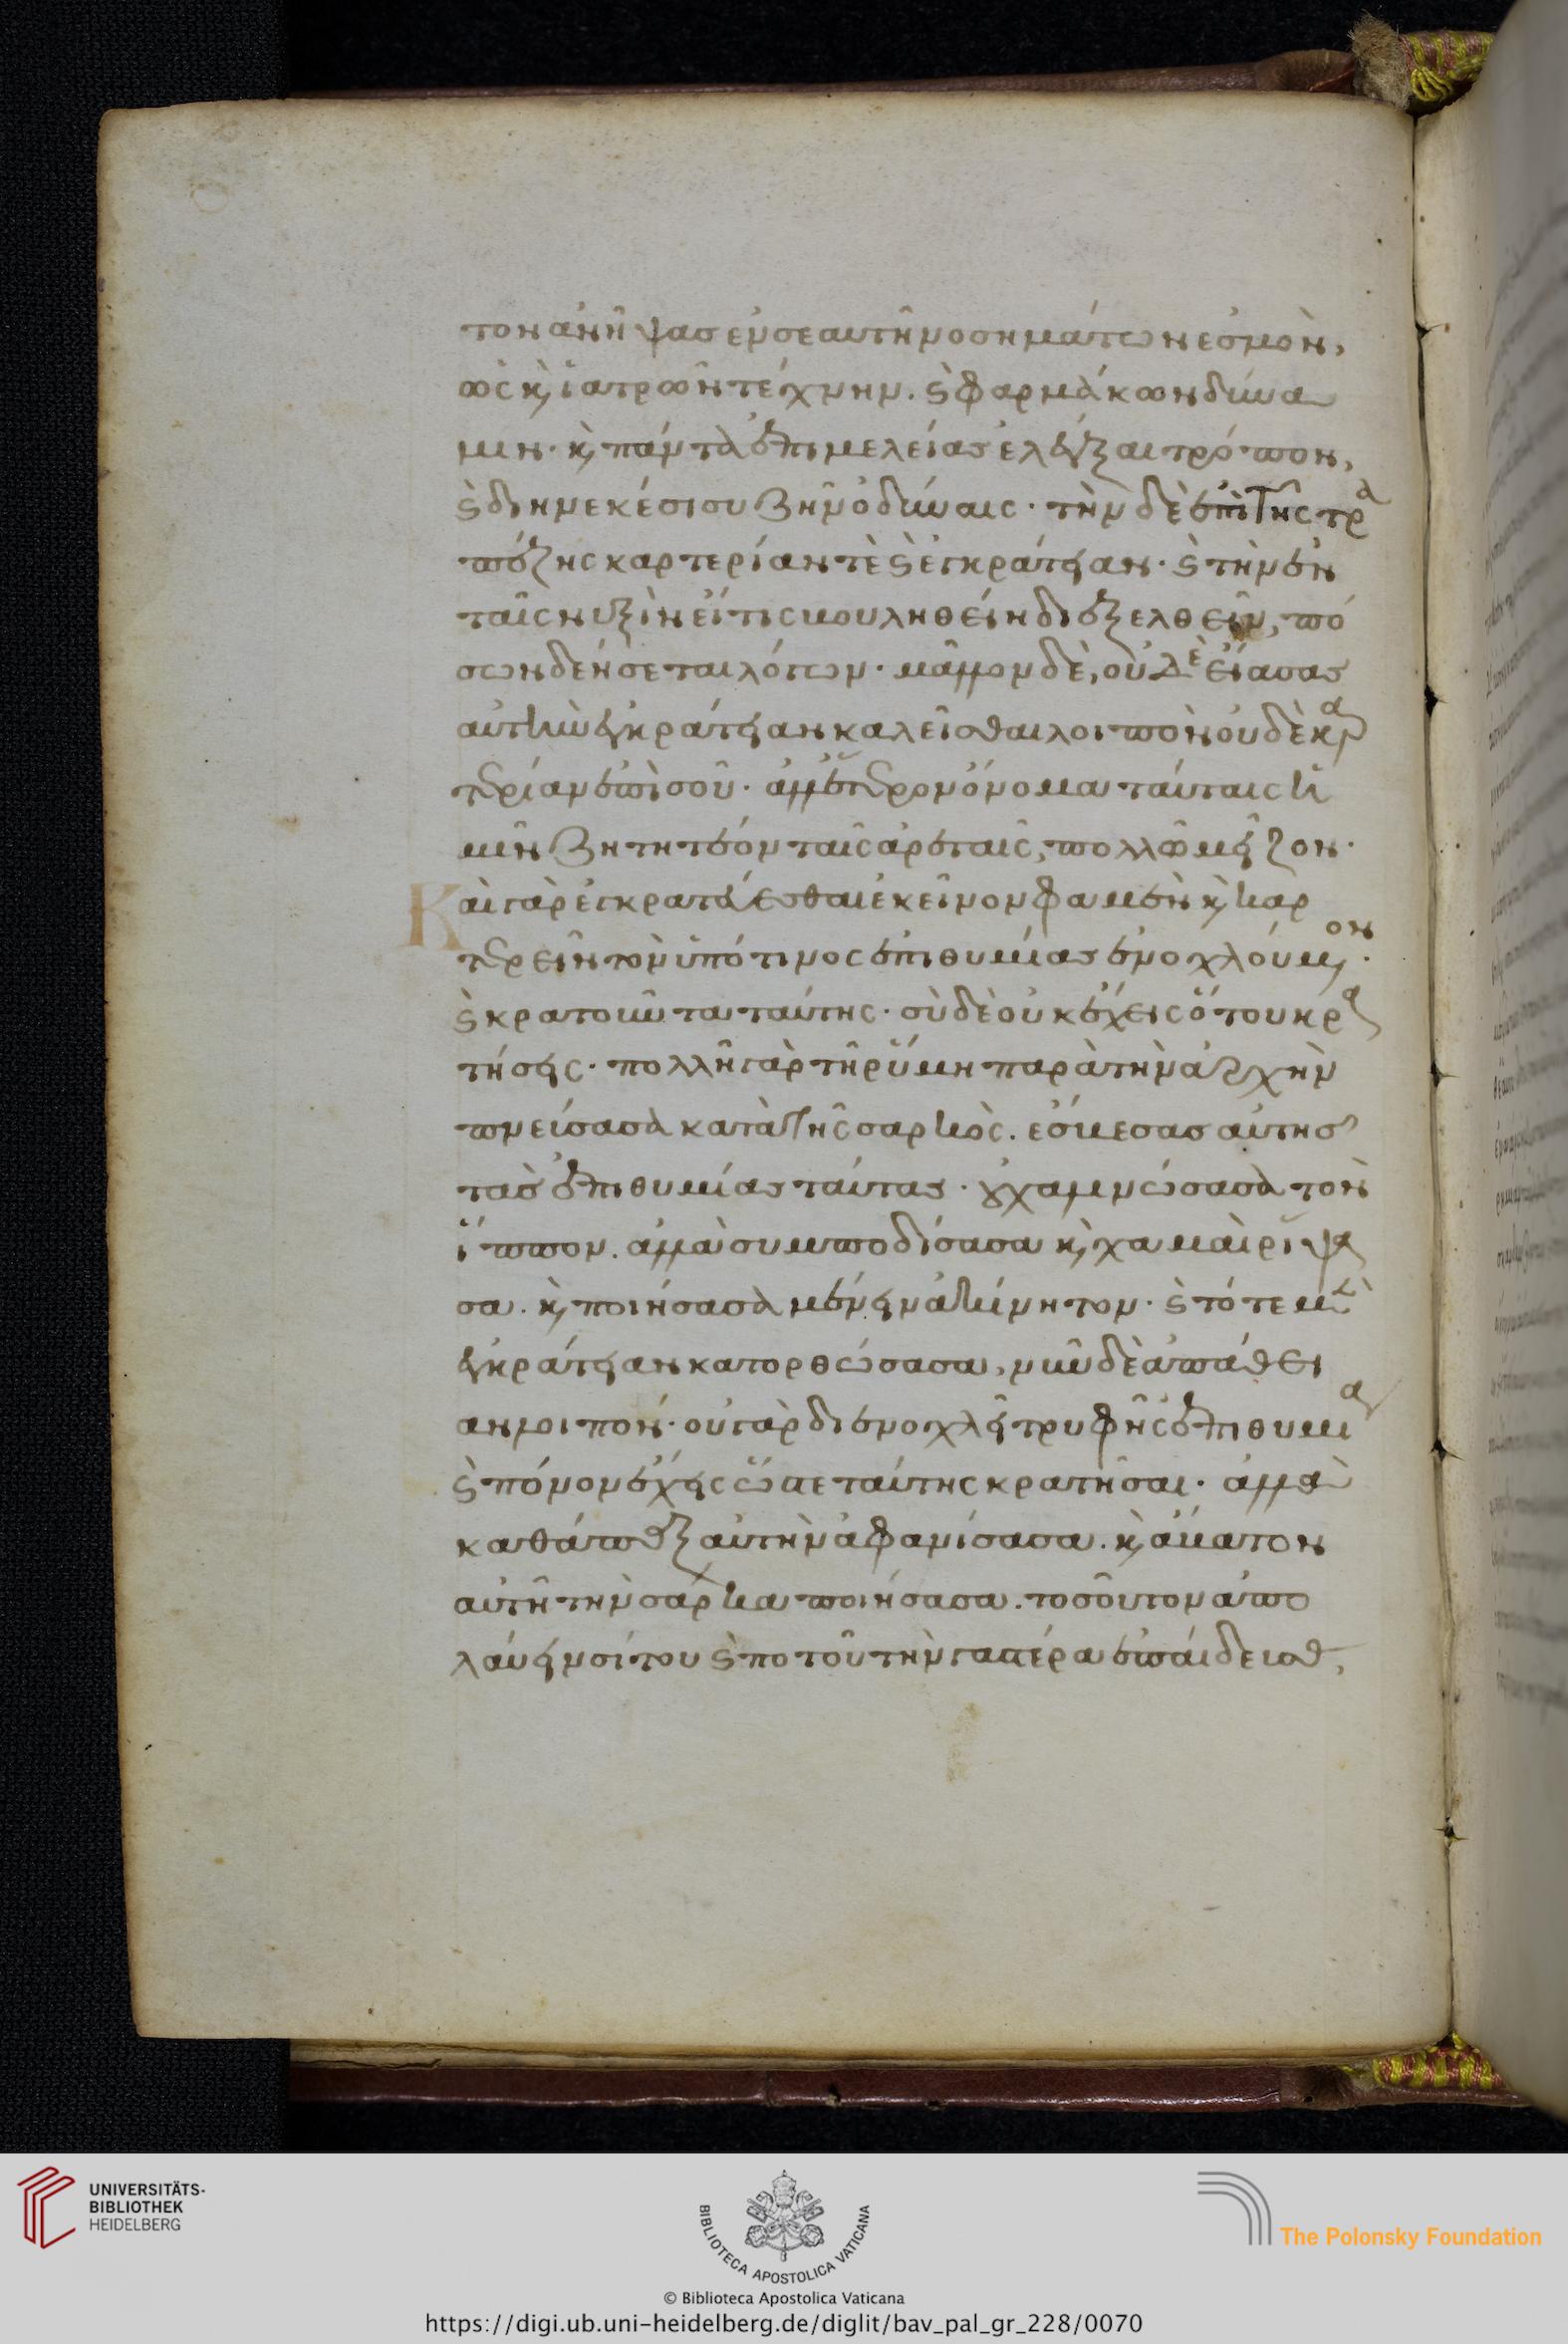 τον ἀνῆψας ἐν σεαυτῆ νοσημάτων ἑσμὸν,
ὡς καὶ ἰατρῶν τέχνην. καὶ φαρμάκων δύνα
μιν. καὶ πάντα ἐπιμελείας ἐλέγξαι τρόπον,
καὶ διηνεκέσι συζῆν ὀδύναις. τὴν δὲ ἐπὶ τῆς τρα
πέζης καρτερίαν τὲ καὶ ἐγκράτειαν. καὶ τὴν ἐν
ταῖς νυξὶν εἴ τις βουληθείη διεξελθεῖν, πό
σων δεήσεται λόγων. μᾶλλον δὲ, οὐδὲ εἴασας
αὐτὴν ἐγκράτειαν καλεῖσθαι λοιπὸν οὐδὲ καρ
τερίαν ἐπὶ σοῦ. ἀλλ' ἕτερον ὄνομα ταύταις ἡ
μῖν ζητητέον ταῖς ἀρεταῖς, πολλῶ μεῖζον.
Καὶ γὰρ ἐγκρατεύεσθαι ἐκεῖνον φαμὲν καὶ καρ
τερεῖν τὸν ὑπό τινος ἐπιθυμίας ἐνοχλούμενον.
καὶ κρατοῦντα ταύτης. σὺ δὲ οὐκ ἔχεις ὅτου κρα
τήσεις. πολλῆ γὰρ τῆ ῥύμη παρὰ τὴν ἀρχὴν
πνείσασα κατὰ τῆς σαρκὸς. ἔσβεσας αὐτῆς
τὰς ἐπιθυμίας ταύτας. οὐ χαλινώσασα τὸν
ἵππον. ἀλλὰ συμποδίσασα καὶ χαμαὶ ῥίψα
σα. καὶ ποιήσασα μένειν ἀκίνητον. καὶ τότε μὲν
ἐγκράτειαν κατορθώσασα, νῦν δὲ ἀπάθει
αν λοιπόν. οὐ γὰρ δι ἐνοχλεῖ τρυφῆς ἐπιθυμία
καὶ πόνον ἔχεις ὥστε ταύτης κρατῆσαι. ἀλλὰ
καθάπαξ αὐτὴν ἀφανίσασα. καὶ ἄβατον
αὐτῆ τὴν σάρκα ποιήσασα. τοσοῦτον ἀπο
λαύειν σίτου καὶ ποτοῦ τὴν γαστέρα ἐπαίδευσας,
UNIVERSITÄTS-
BIBLIOTHEK
HEIDELBERG
BIBLIOTECA APOSTOLICA VATICANA
The Polonsky Foundation
© Biblioteca Apostolica Vaticana
https://digi.ub.uni-heidelberg.de/diglit/bav_pal_gr_228/0070